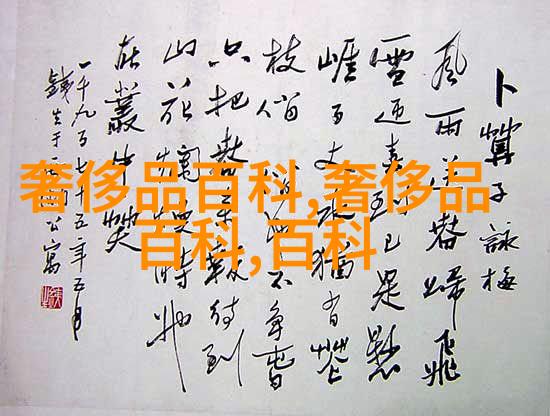 奢侈品百科,奢侈品
百科,百科
卜算子詠梅
風雨送春歸飛
雪迎春到已是懸
崖百丈冰猶有花
枝俏 不爭春
只把春來報待到
山花爛漫時她
在叢中笑
一千九百七十五年五月
于 公寓